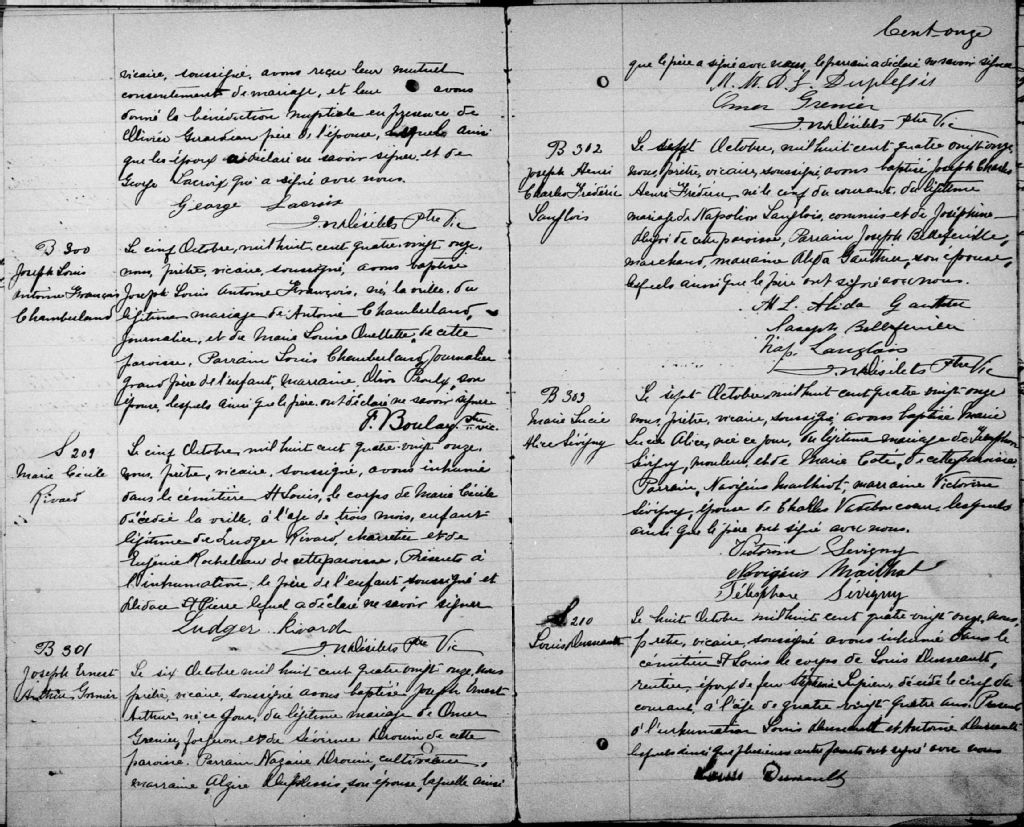 vicaire, soussigné, avons reçu leur mutuel
consentement de mariage, et leur avons
donné la bénédiction nuptiale en présence de
Olivier père de l'épouse, lesquels ainsi
que les époux a déclaré ne savoir signer, et de
George Lacroix qui a signé avec nous.
George Lacroix
Ptre Vic
B 300
Joseph Louis
Antoine François
Chamberland
Le cinq Octobre, mil huit cent quatre-vingt onze,
nous, prêtre, vicaire, soussigné, avons baptisé
Joseph Louis Antoine François, né la veille, du
légitime mariage de Antoine Chamberland,
journalier, et de Marie Louise Ouellette, de cette
paroisse, Parrain Louis Chamberland, journalier
grand père de l'enfant, marraine Proulx, son
épouse, lesquels ainsi que le père ont déclaré ne savoir signer
F. Boulay Ptre vic.
S 209
Marie Cécile
Rivard
Le cinq Octobre, mil huit cent quatre-vingt onze,
nous, prêtre, vicaire, soussigné, avons inhumé
dans le cimetière St Louis, le corps de Marie Cécile
décédée la veille, à l'âge de trois mois, enfant
légitime de Ludger Rivard, charretier et de
Eugénie Rocheleau de cette paroisse, Présents à
l'inhumation, le père de l'enfant, soussigné et
St Pierre lequel a déclaré ne savoir signer
Ludger Rivard
Ptre Vic
B 301
Joseph Ernest
Arthur Grenier
Le six Octobre mil huit cent quatre vingt onze, nous
prêtre, vicaire, soussigné avons baptisé Joseph Ernest
Arthur, né ce jour, du légitime mariage de Omer
Grenier, forgeron, et de Drouin de cette
paroisse. Parrain Nazaire Drouin, cultivateur,
marraine, Duplessis, son épouse, laquelle ainsi
Cent-onze
que le père a signé avec nous, le parrain a déclaré ne savoir signer
Duplessis
Omer Grenier
Ptre Vic
B 302
Joseph Henri
Charles Frédéric
Langlois
Le sept Octobre, mil huit cent quatre vingt onze,
nous, prêtre, vicaire, soussigné avons baptisé Joseph Charles
Henri Frédéric, né le cinq du courant, du légitime
mariage de Napoléon Langlois, commis et de Joséphine
de cette paroisse, Parrain Joseph Bellefeuille,
marchand, marraine Alida Gauthier, son épouse,
lesquels ainsi que le père ont signé avec nous.
M L Alida Gauthier
Joseph Bellefeuille
Nap. Langlois
Ptre Vic
B 303
Marie Lucie
Alice Sévigny
Le sept Octobre mil huit cent quatre vingt onze
nous, prêtre, vicaire, soussigné, avons baptisé Marie
Lucie Alice, née ce jour, du légitime mariage de Télesphore
Sévigny, mouleur, et de Marie Coté, de cette paroisse
Parrain, Mailhot, marraine Victorine
Sévigny, épouse de lesquels
ainsi que le père ont signé avec nous.
Victorine Sévigny
Mailhot
Télesphore Sévigny
S 210
Louis Dusseault
Le huit Octobre mil huit cent quatre vingt onze, nous,
prêtre, vicaire, soussigné avons inhumé dans le
cimetière St Louis le corps de Louis Dusseault,
rentier, époux de feu décédé le cinq du
courant, à l'âge de quatre vingt quatre ans. Présents
à l'inhumation Louis Dusseault et Antoine Dusseault
lesquels ainsi que plusieurs autre parents ont signé avec nous
Louis Dusseault